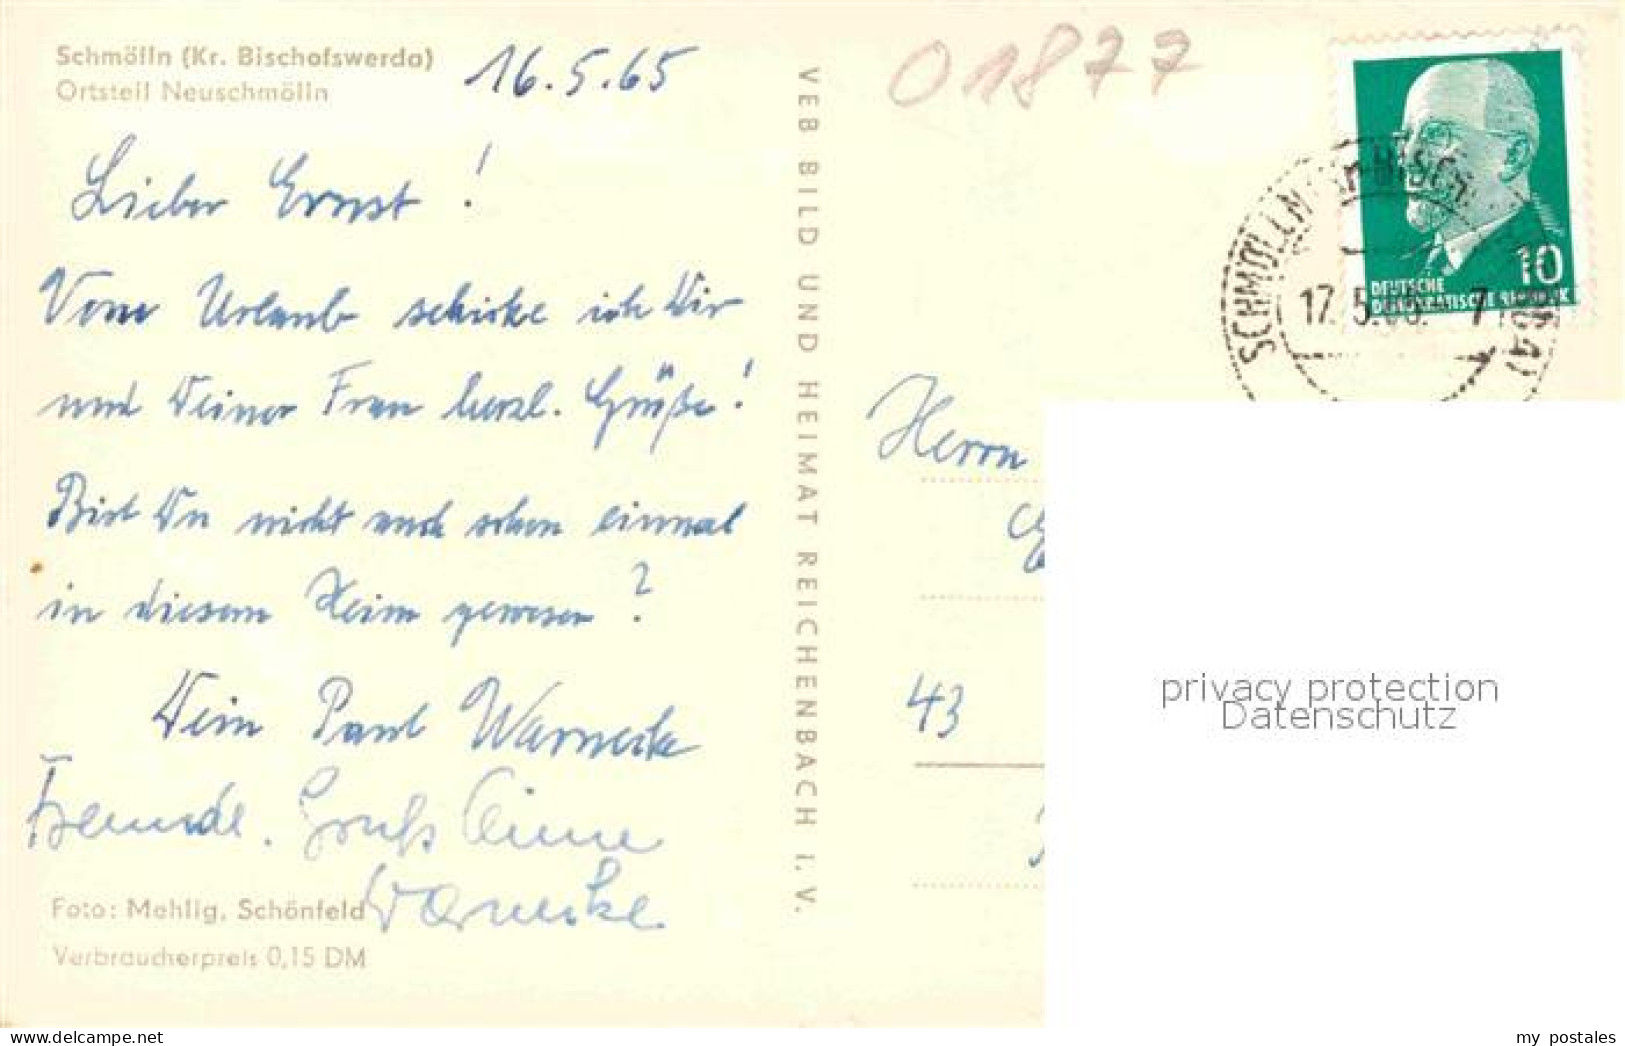 Schmölln (Kr. Bischofswerda)
Ortsteil Neuschmölln
16.5.65
Lieber Ernst!
Vom Urlaub schicke ich Dir
und Deiner Frau herzl. Grüße!
Bist Du nicht auch schon einmal
in diesem Heim gewesen?
Dein Paul Warnecke
Freundl. Gruß Anne
Warnecke
Foto: Mehlig, Schönfeld
Verbraucherpreis 0,15 DM
VEB BILD UND HEIMAT REICHENBACH I. V.
01877
10
DEUTSCHE
DEMOKRATISCHE REPUBLIK
SCHMÖLLN
17. 5.65. - 7
Herrn
43
privacy protection
Datenschutz
my postales